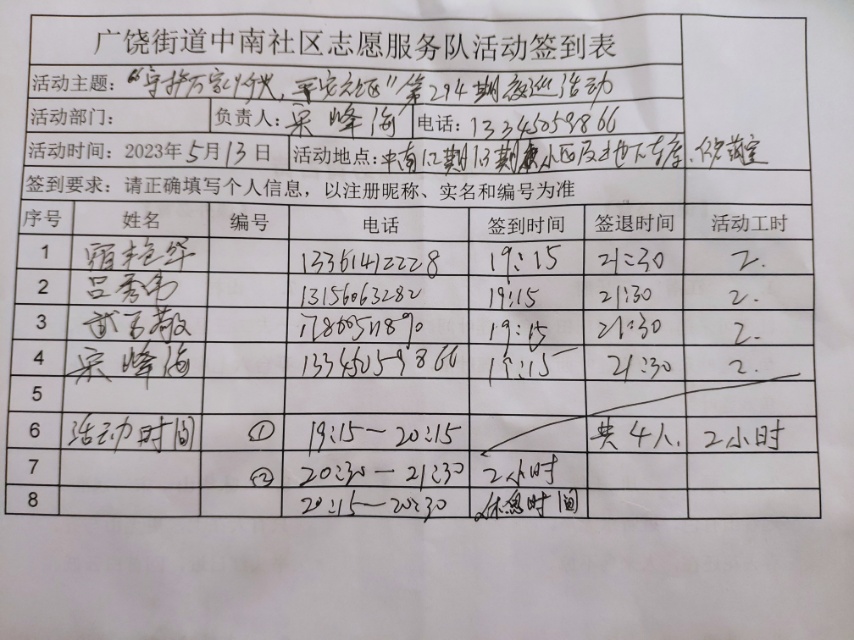 广饶街道中南社区志愿服务队活动签到表
活动主题: “守护万家灯火, 平安社区”第294期夜巡活动
活动部门: 负责人: 宋峰海 电话: 13345059866
活动时间: 2023年5月13日 活动地点: 中南12期13期 小区及地下车库、
签到要求: 请正确填写个人信息, 以注册昵称、实名和编号为准
序号 姓名 编号 电话 签到时间 签退时间 活动工时
1 华 13361412228 19:15 21:30 2.
2 吕秀伟 13156063282 19:15 21:30 2.
3 武 敬 19:15 21:30 2.
4 宋峰海 13345059866 19:15 21:30 2.
5
6 活动时间 ① 19:15—20:15 共4人. 2小时
7 ② 20:30—21:30 2小时
8 20:15—20:30 休息时间